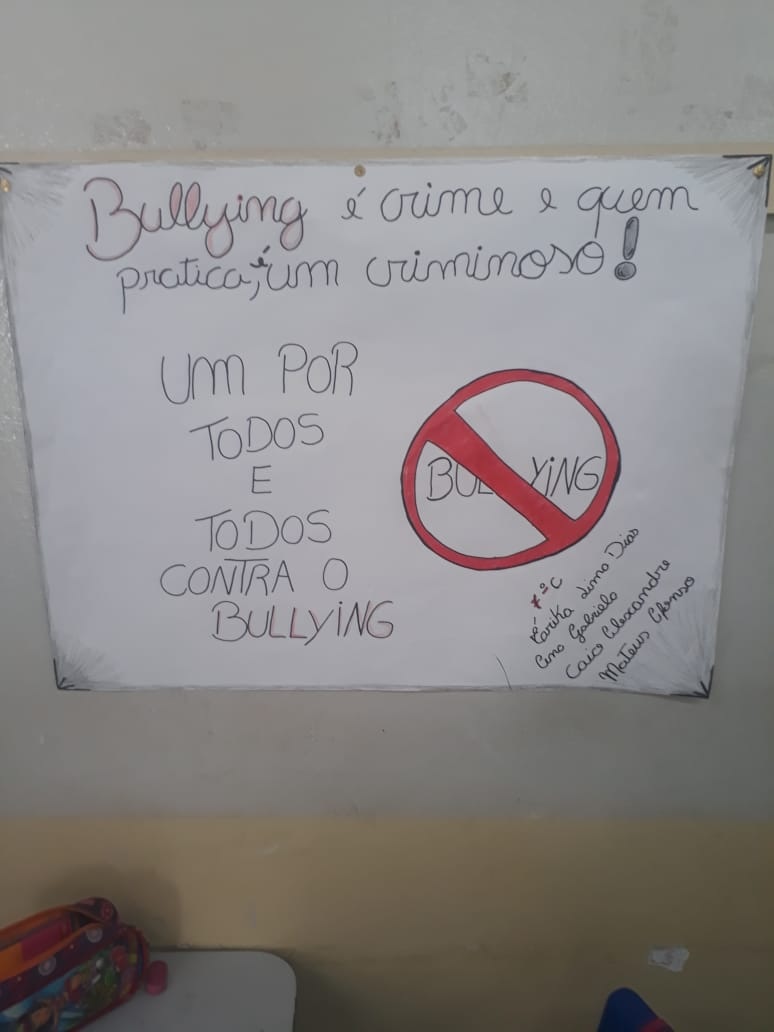 Bullying é crime e quem
pratica, é um criminoso!
UM POR
TODOS
E
TODOS
CONTRA O
BULLYING
BUL YING
7ºC
Érika Lima Dias
Ana Gabriela
Caio Alexandre
Mateus Afonso